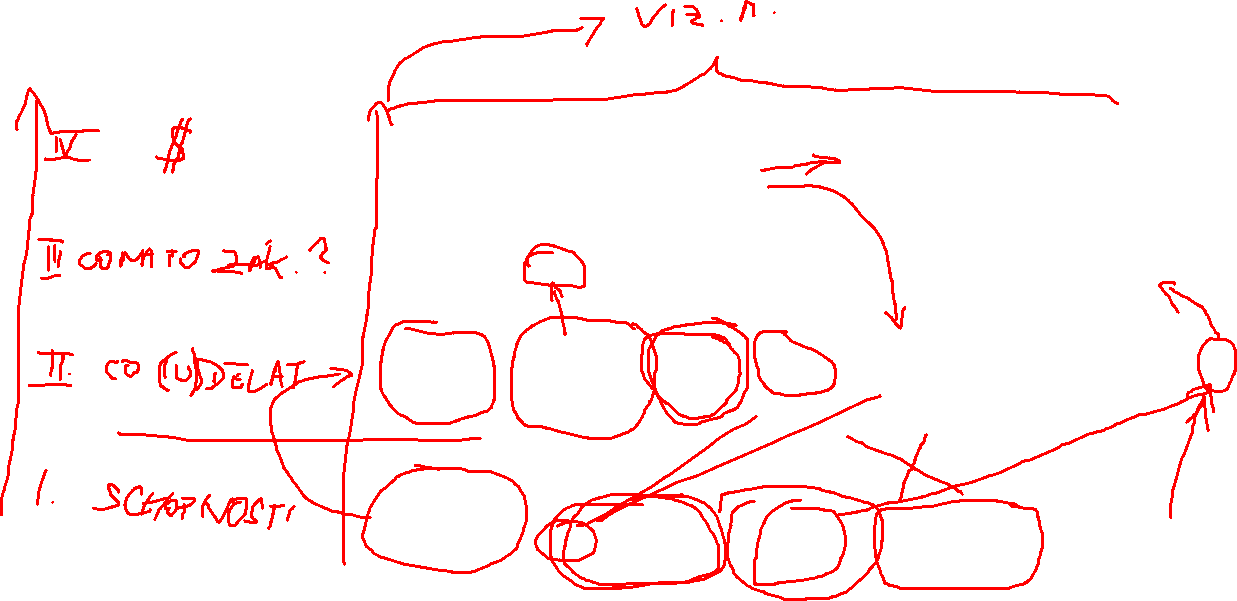 VIZ. n.
IV $
III CO NA TO ZÁK. ?
II. CO (U)DĚLAT
1. SCHOPNOSTI